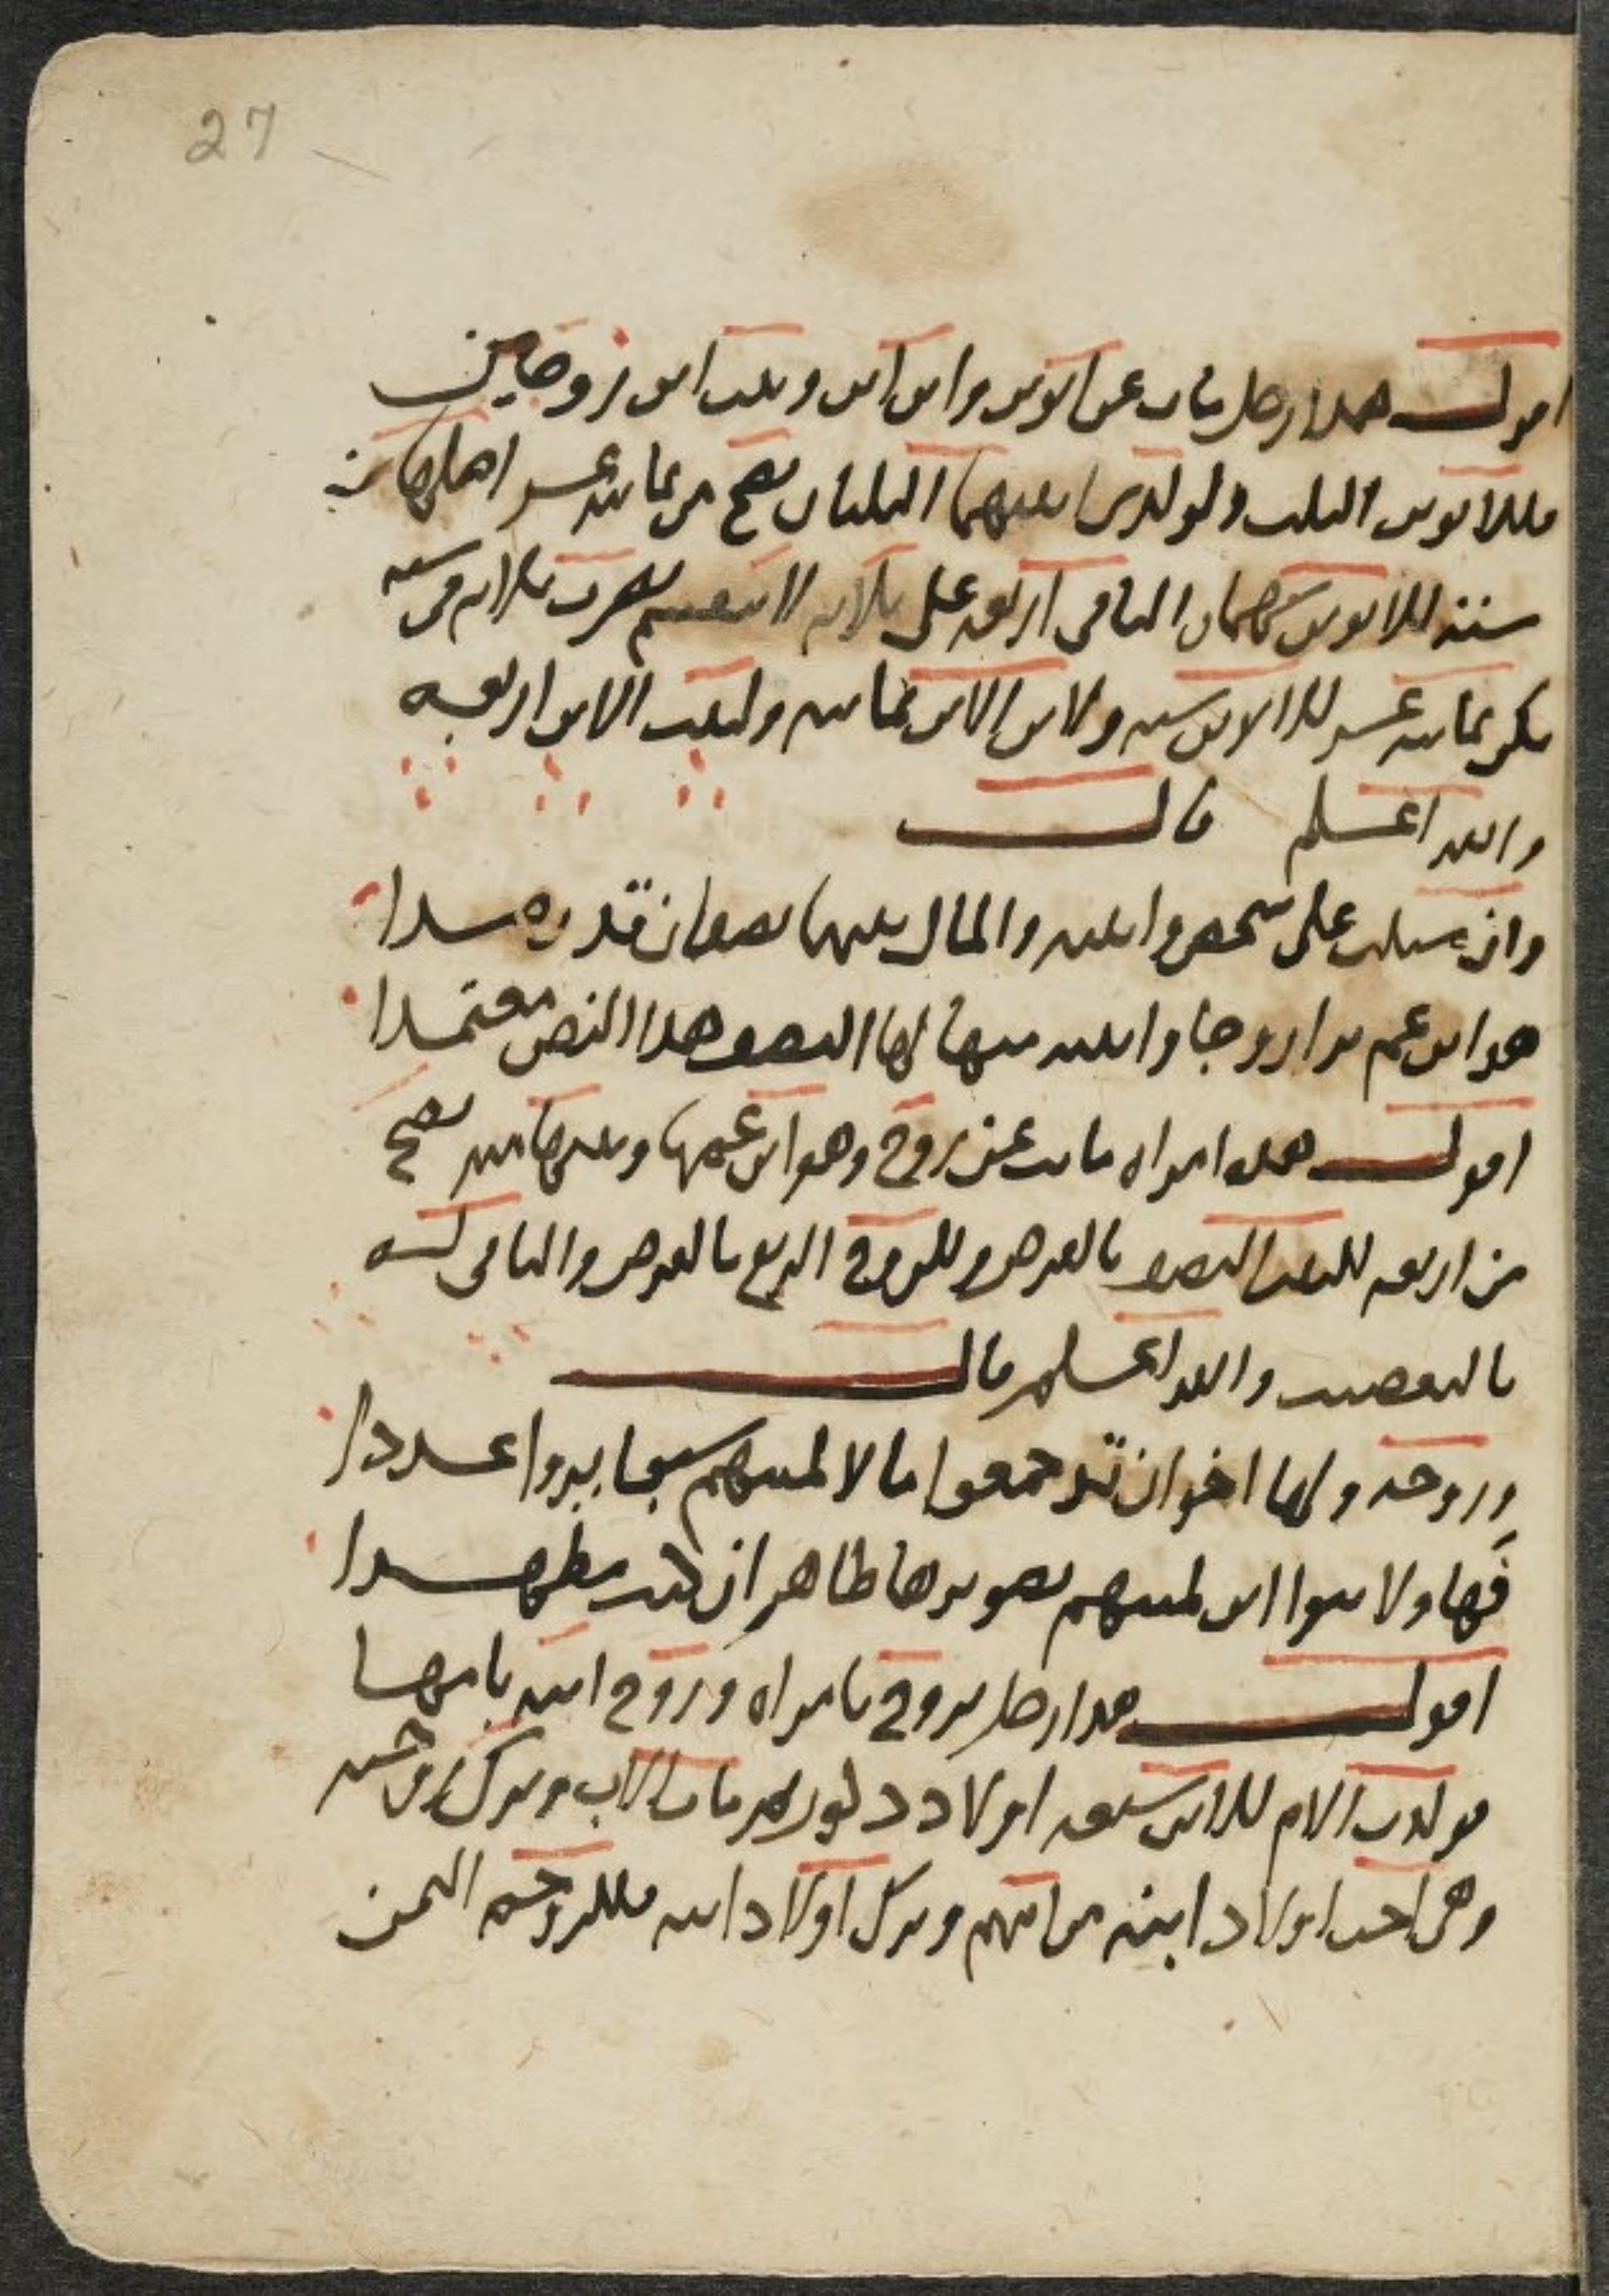 27
اقول هذا رجل مات عن ابوين وابن ابن وبنت ابن زوجين
فللابوين الثلث ولولدي ابنيهما الثلثان تصح من ثمانية عشر اصلها من
ستة للابوين سهمان الباقي اربعة على ثلاثة لا تنقسم تضرب ثلاثة في ستة
تكن ثمانية عشر للابوين ستة ولابن الابن ثمانية ولبنت الابن اربعة
والله اعلم قال
وان سيلت على شخص وابنته والمال بينهما نصفان قد ردا
هو ابن عم يرا زوجا وابنته منها لها النصف هذا النص معتمدا
اقول هذه امراه ماتت عن زوج وهو ابن عمها وبنتها منه تصح
من اربعة للبنت النصف بالفرض وللزوج الربع بالفرض والباقي له
بالتعصيب والله اعلم قال
وزوجة ولها اخوان قد جمعوا مالا لميتهم سبعا يروا عددا
فها ولا بنوا ابن لميتهم تصويرها ظاهر ان كنت
اقول هذا رجل تزوج بامراه وزوج ابنه بامها
فولدت الام للابن سبعة اولاد ذكور ثم مات الاب وترك زوجته
وهي اخت اولاد ابنه من امهم وترك اولاد ابنه فللزوجة الثمن